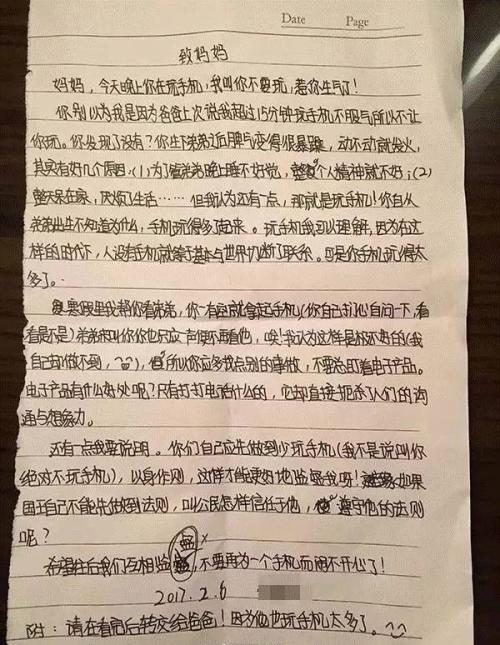 Date Page
致妈妈
妈妈，今天晚上你在玩手机，我叫你不要玩，惹你生气了！
你别以为我是因为爸爸上次说我超过15分钟玩手机不服气所以不让
你玩。你发现了没有？你生下弟弟后脾气变得很暴躁，动不动就发火，
其实有好几个原因：(1)为了管弟弟晚上睡不好觉，整个人精神就不好；(2)
整天呆在家，厌烦了生活……但我认为还有一点，那就是玩手机！你自从
弟弟出生不知道为什么，手机玩得多了起来。玩手机我可以理解，因为在这
样的时代下，人没有手机就等于基本与世界切断了联系。可是你手机玩得太
多了。
寒假里我帮你看弟弟，你一有空就拿起手机(你自己扪心自问一下，看
看是不是)弟弟叫你你也只应一声便不再看他，唉！我认为这样是极不好的(我
自己却做不到，)，所以你应多找点别的事做，不要总盯着电子产品。
电子产品有什么好处呢？只有打打电话什么的，它却直接扼杀了人们的沟
通与想象力。
还有一点我要说明。你们自己应先做到少玩手机(我不是说叫你
绝对不玩手机)，以身作则，这样才能更好地监督我呀！如果
国王自己不能先做到法则，叫公民怎样信任于他，遵守他的法则
呢？
希望往后我们互相监督，不要再为一个手机而闹不开心了！
2017.2.6
附：请在看后转交给爸爸！因为他也玩手机太多了。